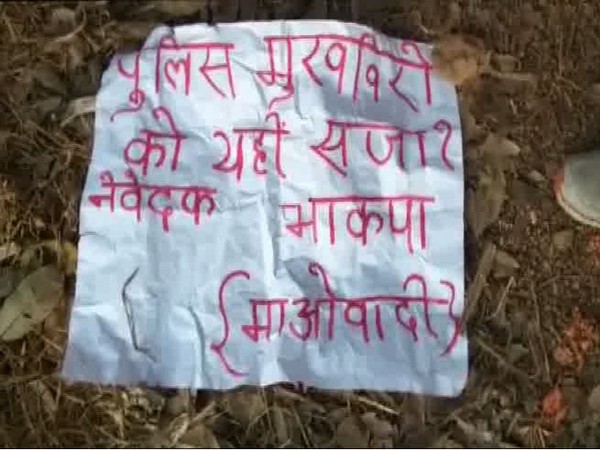 पुलिस मुखविरो
को यही सजा?
नेवेदक भाकपा
{माओवादी}